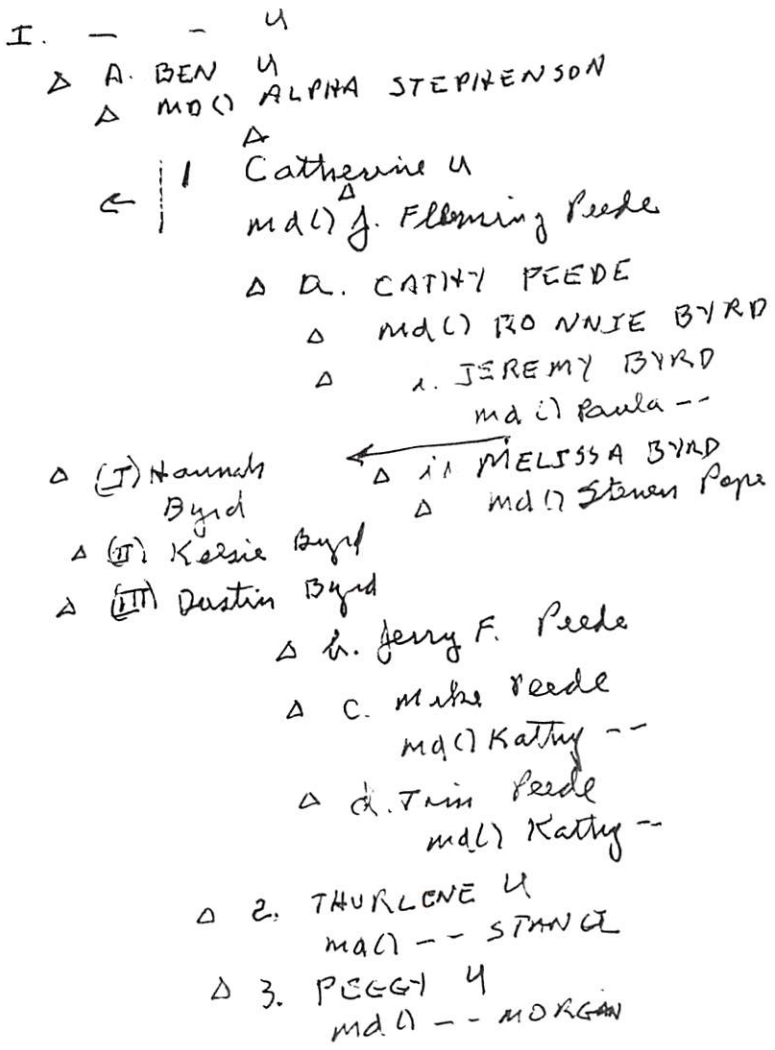 I. — — U
Δ A. BEN U
Δ MD() ALPHA STEPHENSON
Δ
← 1 Catherine U
Δ
md() J. Flleming Peede
Δ a. CATHY PEEDE
Δ md() RONNIE BYRD
Δ i. JEREMY BYRD
md() Paula --
Δ ii MELISSA BYRD
Δ md() Steven Pope
Δ (I) Hannah
Byrd
Δ (II) Kelsie Byrd
Δ (III) Dustin Byrd
Δ b. Jerry F. Peede
Δ c. Mike Peede
md() Kathy --
Δ d. Tim Peede
md() Kathy --
Δ 2. THURLENE U
md() -- 
Δ 3. PEGGY U
md() -- MORGAN